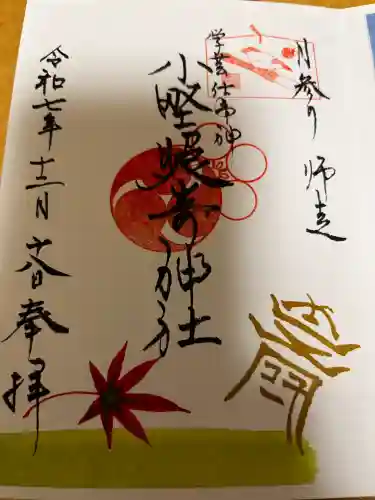 月参り 師走
学芸仕事神
小野照崎神社
令和七年十二月 日 奉拝